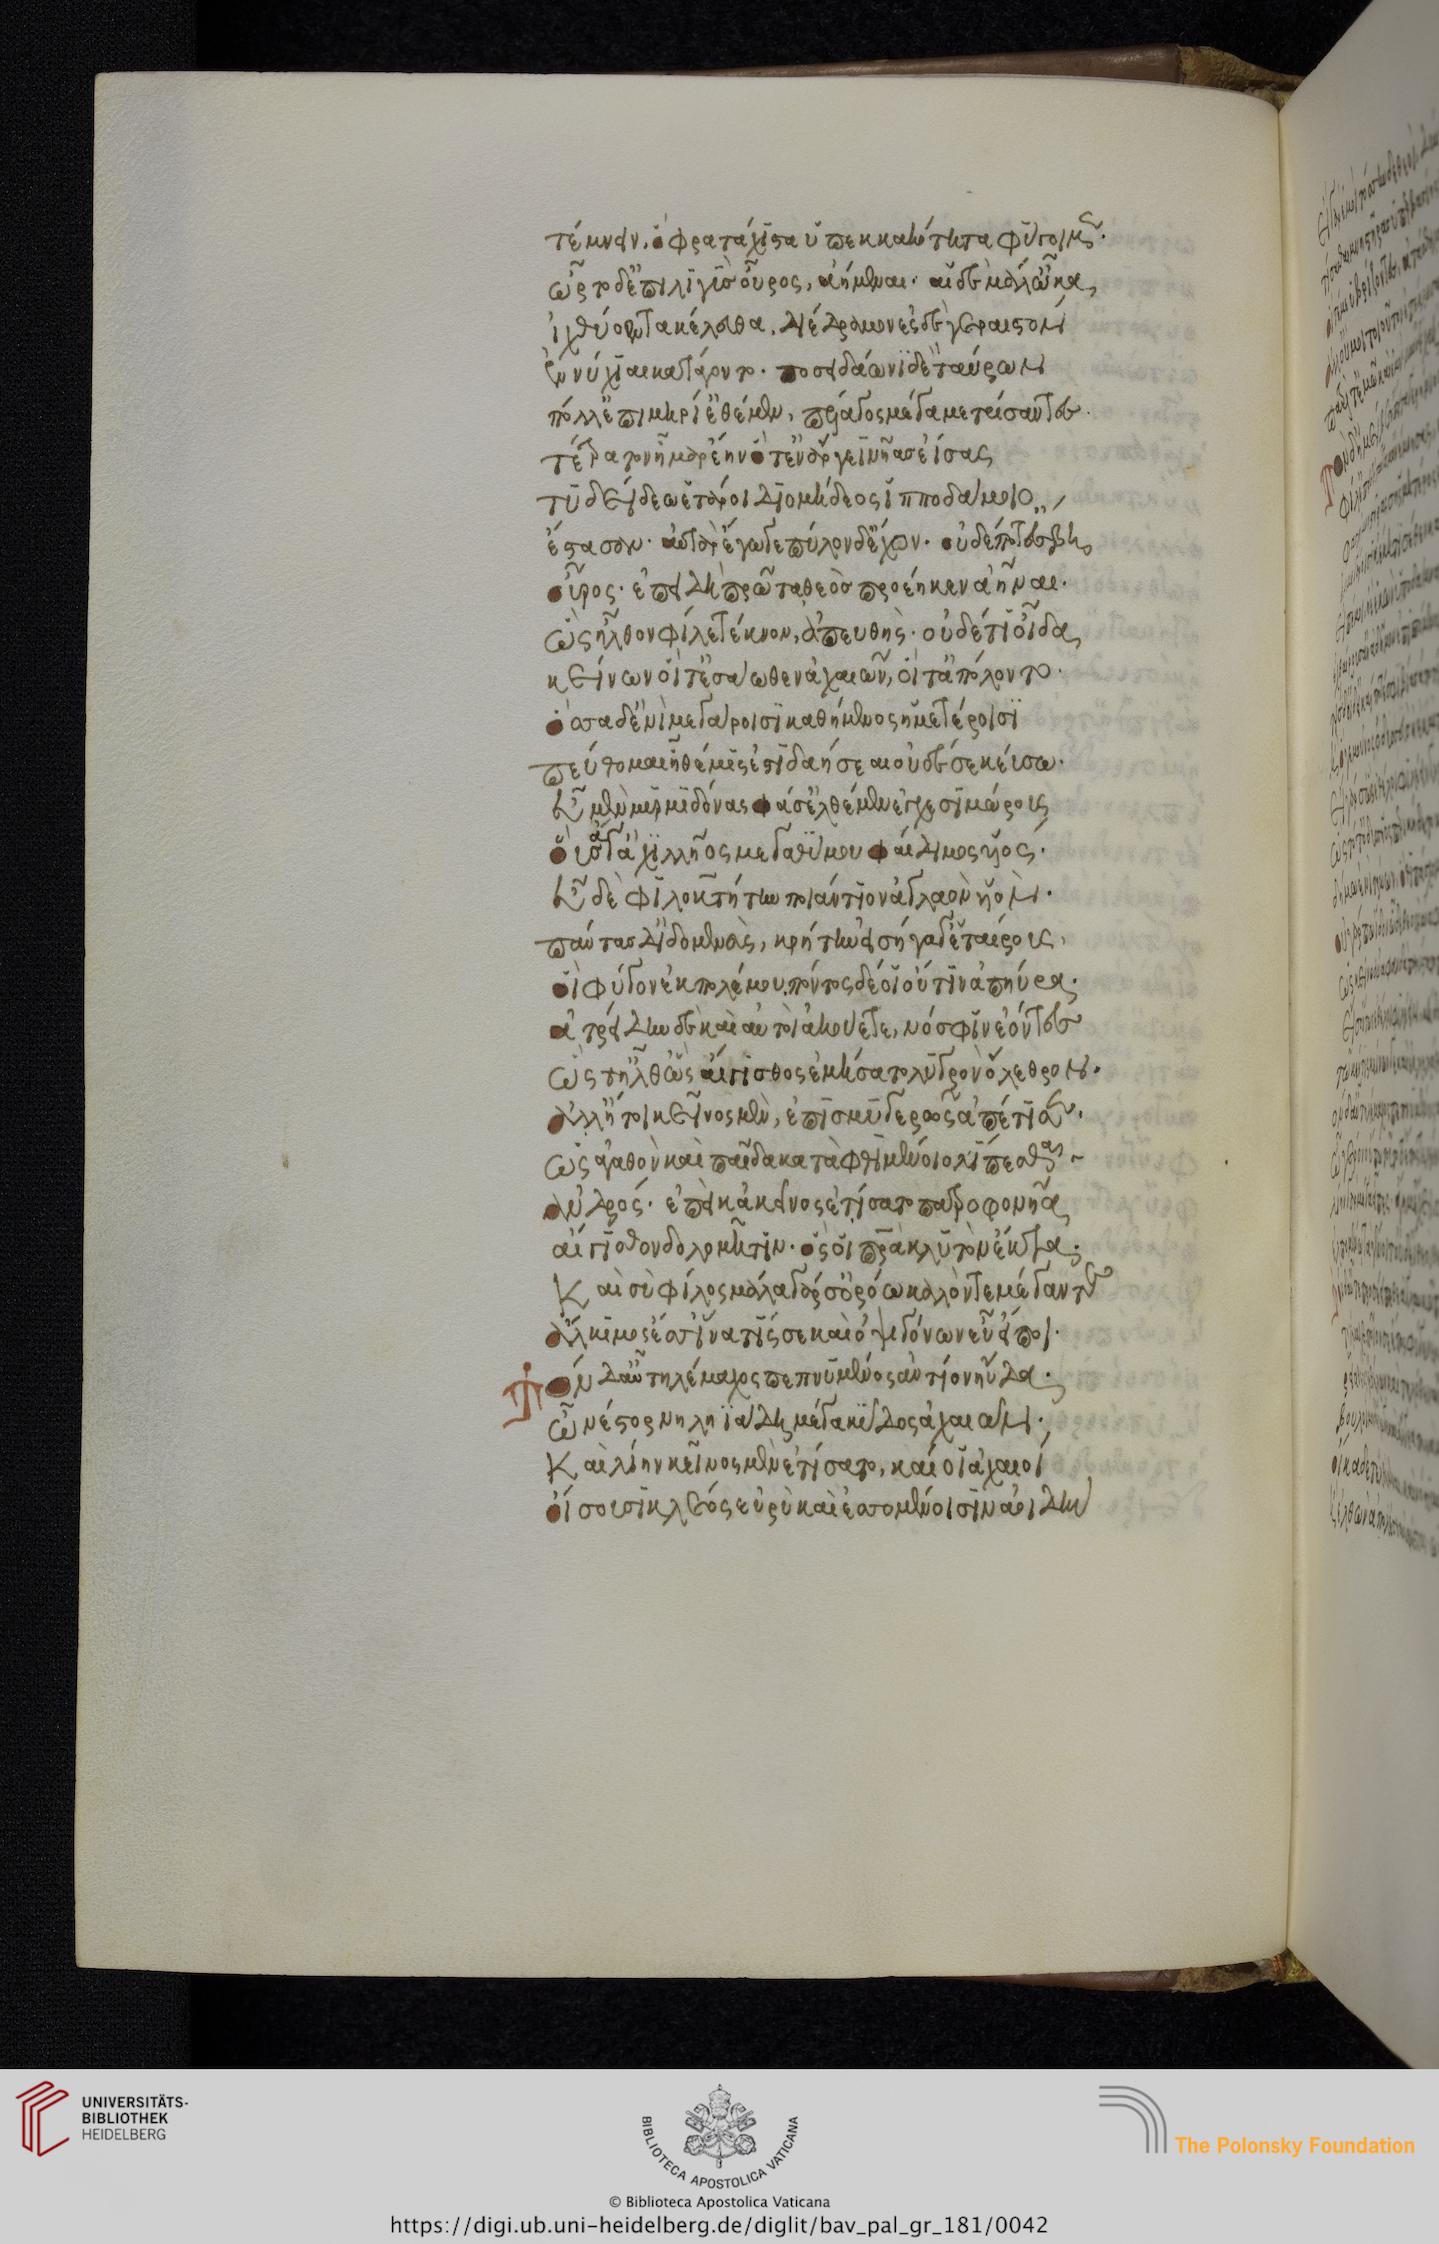 τέμνειν, ὄφρα τάχιστα ὑπεκ κακότητα φύγοιμεν.
ὦρτο δ' ἐπὶ λιγὺς οὖρος, ἀήμεναι. αἱ δὲ μάλ' ὦκα
ἰχθυόεντα κέλευθα διέδραμον ἐς δὲ γεραιστὸν
ἐννύχιαι κατάγοντο. ποσειδάωνι δὲ ταύρων
πόλλ' ἐπὶ μηρί' ἔθεμεν, πέλαγος μέγα μετρήσαντες.
τέτρατον ἦμαρ ἔην ὅτ' ἐν ἄργεϊ νῆας ἐίσας
τυδείδεω ἕταροι διομήδεος ἱπποδάμοιο
ἔστασαν. αὐτὰρ ἔγωγε πύλονδ' ἔχον. οὐδέποτ' ἔσβη
οὖρος. ἐπειδὴ πρῶτα θεὸς προέηκεν ἀῆναι.
ὣς ἦλθον φίλε τέκνον, ἀπευθής. οὐδέ τι οἶδα
κείνων οἵ τ' ἐσάωθεν ἀχαιῶν, οἵ τ' ἀπόλοντο.
ὅσσα δ' ἐνὶ μεγάροισι καθήμενος ἡμετέροισι
πεύθομαι ἣ θέμις ἐστὶ δαήσεαι οὐδέ σε κεύσω.
εὖ μὲν μυρμιδόνας φάσ' ἐλθέμεν ἐγχεσιμώρους
οὓς ἄγ' ἀχιλλῆος μεγαθύμου φαίδιμος υἱός.
εὖ δὲ φιλοκτήτην ποιάντιον ἀγλαὸν υἱόν.
πάντας δ' ἰδομενεὺς, κρήτην εἰσήγαγ' ἑταίρους,
οἳ φύγον ἐκ πολέμου, πόντος δέ οἱ οὔτιν' ἀπηύρα.
ἀτρείδην δὲ καὶ αὐτοὶ ἀκούετε, νόσφιν ἐόντες
ὥς τ' ἦλθ' ὥς τ' αἴγισθος ἐμήσατο λυγρὸν ὄλεθρον.
ἀλλ' ἤτοι κεῖνος μὲν, ἐπισμυγερῶς ἀπέτισεν.
ὡς ἀγαθὸν καὶ παῖδα καταφθιμένοιο λιπέσθαι
ἀνδρός. ἐπεὶ κἀκεῖνος ἐτίσατο πατροφονῆα
αἴγισθον δολόμητιν. ὅς οἱ πατέρα κλυτὸν ἔκτα.
Καὶ σὺ φίλος μάλα γάρ σ' ὁρόω καλόν τε μέγαν τε
ἄλκιμος ἔσσ' ἵνα τίς σε καὶ ὀψιγόνων εὖ εἴποι.
Τὸν δ' αὖ τηλέμαχος πεπνυμένος ἀντίον ηὔδα.
ὦ νέστορ νηληϊάδη μέγα κῦδος ἀχαιῶν.
Καὶ λίην κεῖνος μὲν ἐτίσατο, καί οἱ ἀχαιοὶ
οἴσουσι κλέος εὐρὺ καὶ ἐσσομένοισιν ἀοιδήν
UNIVERSITÄTS-
BIBLIOTHEK
HEIDELBERG
BIBLIOTECA APOSTOLICA VATICANA
The Polonsky Foundation
© Biblioteca Apostolica Vaticana
https://digi.ub.uni-heidelberg.de/diglit/bav_pal_gr_181/0042